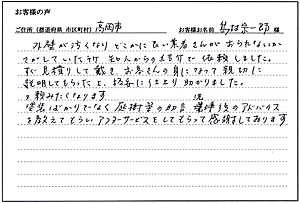 お客様の声
ご住所（都道府県 市区町村） 高岡市 お客様お名前 様
外壁が汚くなり どこかに良い業者さんがおられないか
さがしていた所 知人からの紹介で依頼しました。
すぐ見積りして戴き お客さんの身になって親切に
説明してもらったり、
頼みたくなります
塗装ばかりでなく 庭樹等の助言 環境後のアドバイス
を教えてもらい アフターサービスをしてもらって感謝しております